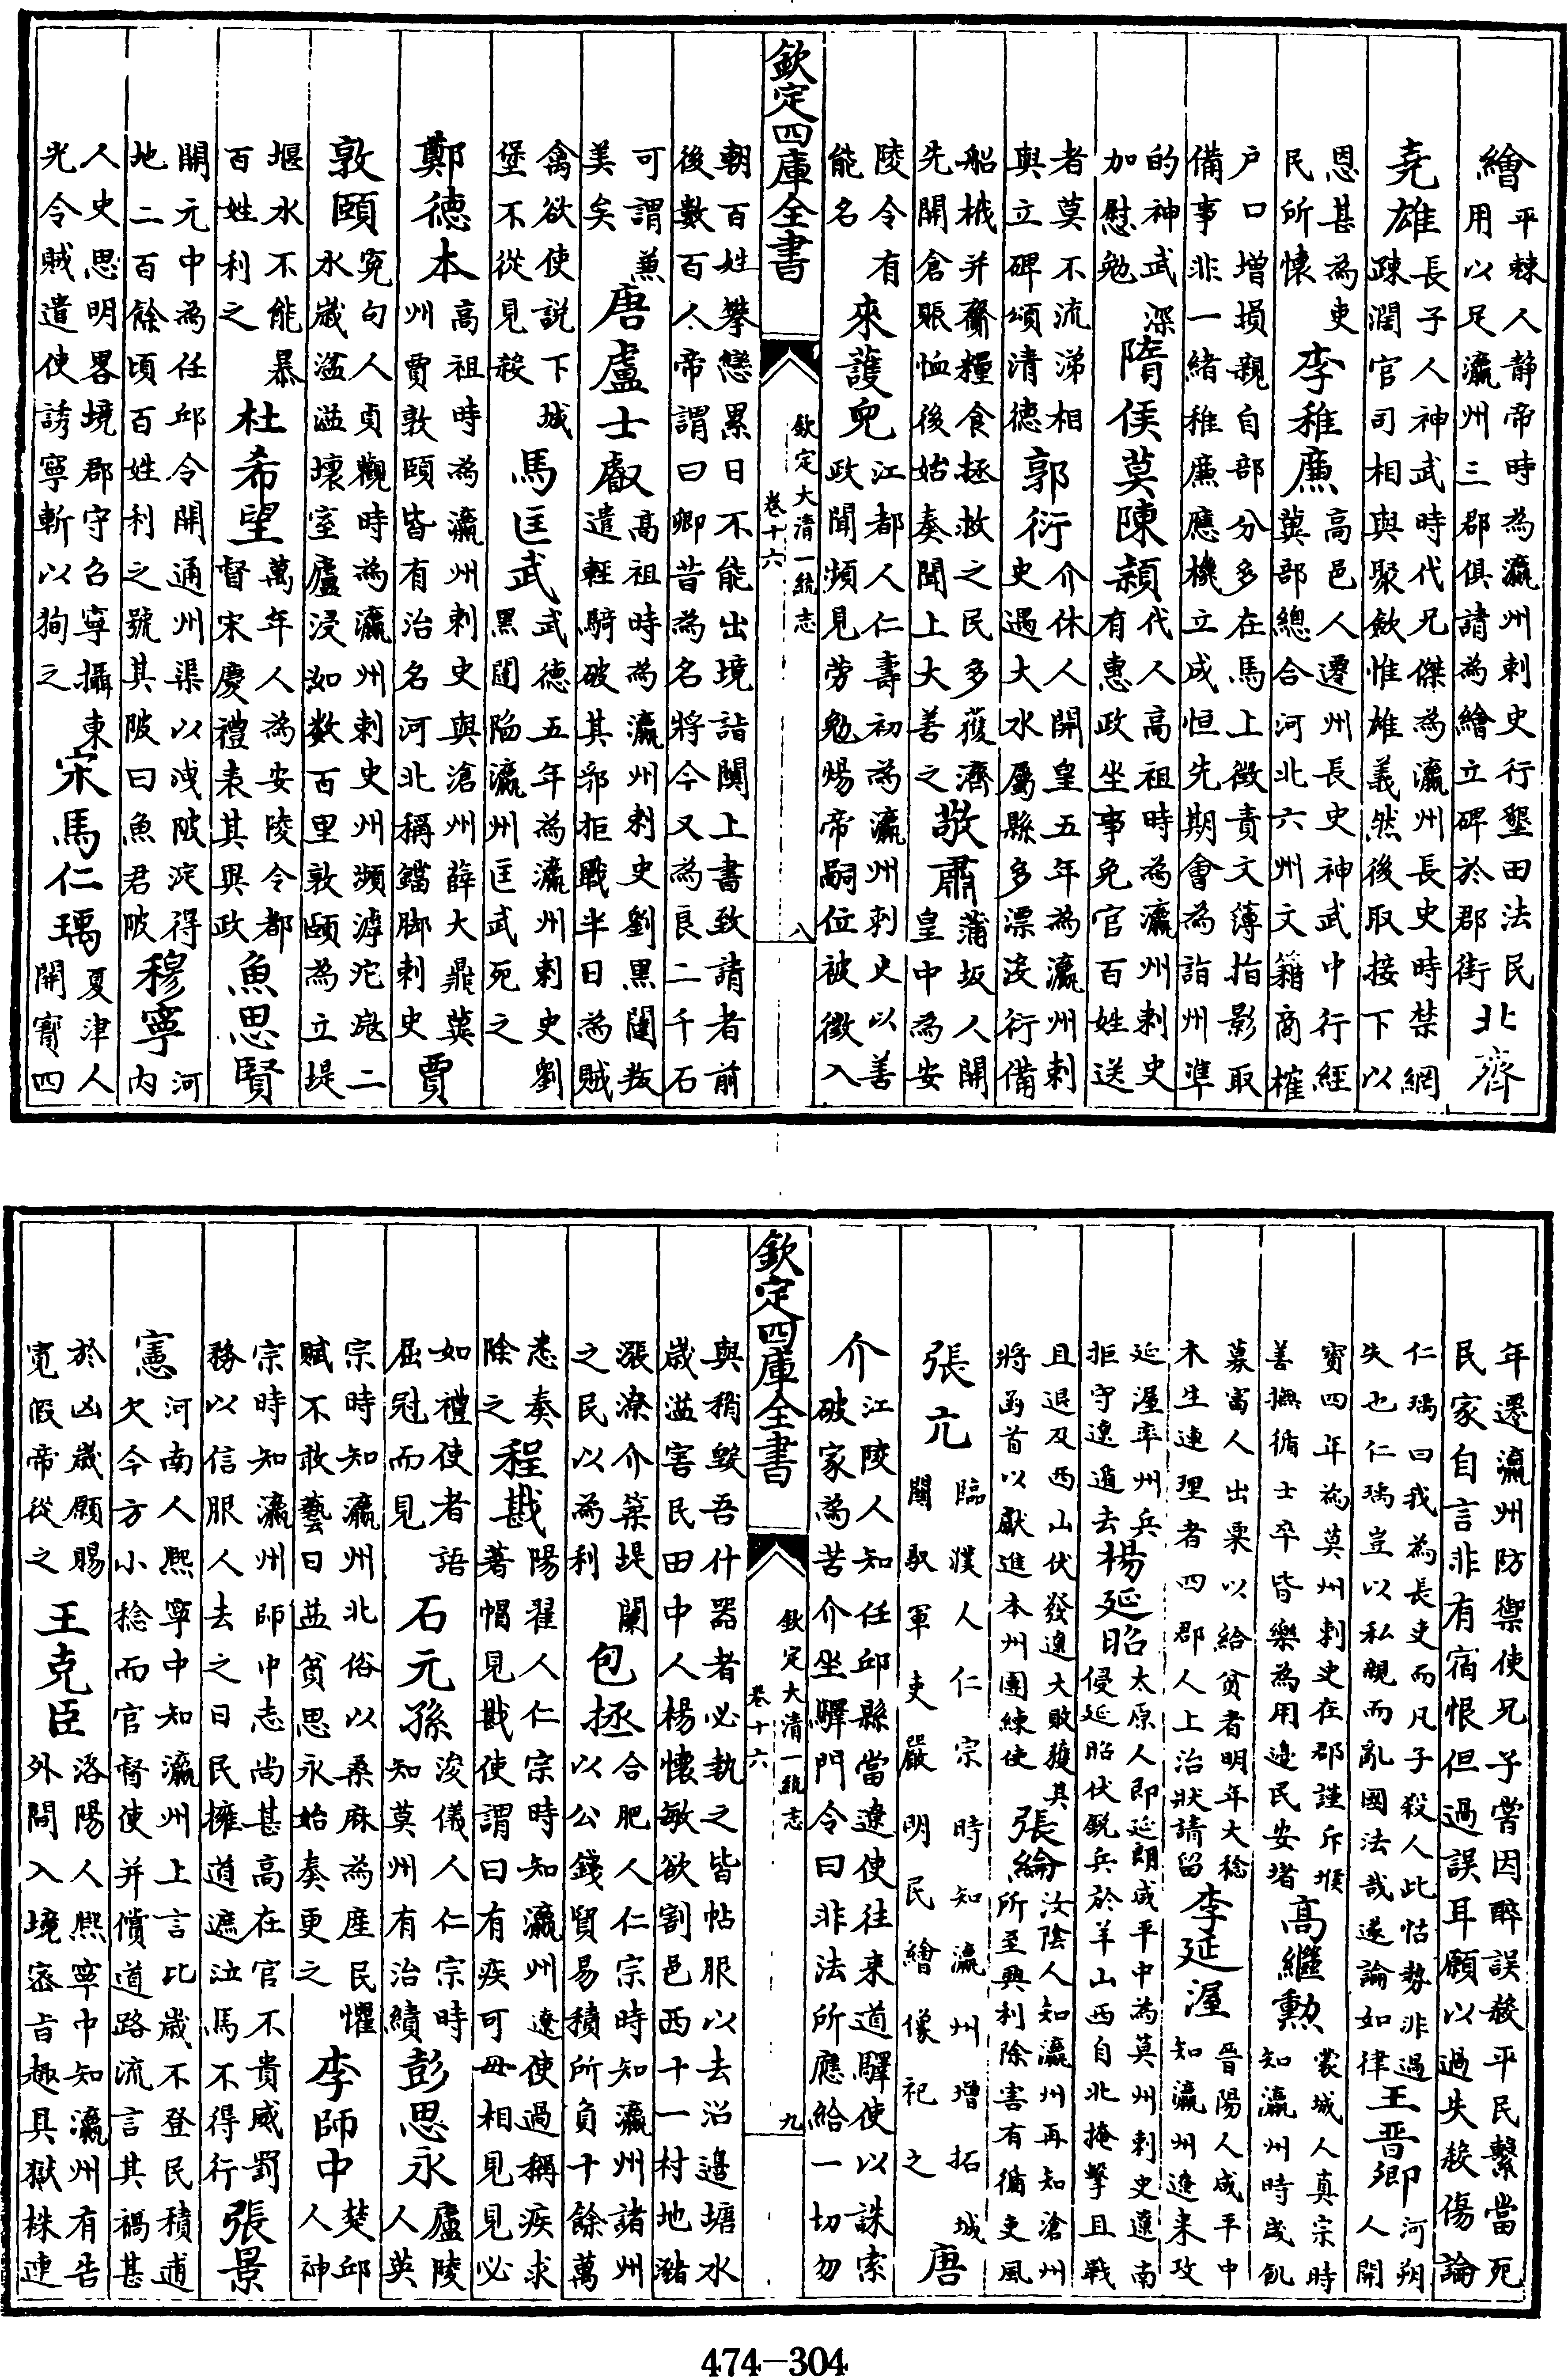 繪平棘人静帝時為瀛州刺史行墾田法民
用以足瀛州三郡俱請為繪立碑於郡街北齊
堯雄長子人神武時代兄傑為瀛州長史時禁網
疎濶官司相與聚歛惟雄義然後取接下以
恩甚為吏
民所懷李稚廉高邑人遷州長史神武中行經
冀部總合河北六州文籍商榷
户口增損親自部分多在馬上徴責文簿指影取
備事非一緒稚廉應機立成恒先期會為詣州準
的神武深
加慰勉隋侯莫陳頴代人高祖時為瀛州刺史
有惠政坐事免官百姓送
者莫不流涕相
與立碑頌清德郭衍介休人開皇五年為瀛州刺
史遇大水屬縣多漂没衍備
船栰并齎糧食拯救之民多獲濟
先開倉賑恤後始奏聞上大善之敬肅蒲坂人開
皇中為安
陵令有
能名來護兒江都人仁壽初為瀛州刺史以善
政聞頻見勞勉煬帝嗣位被徴入
欽定四庫全書
欽定大清一統志
卷十六
八
朝百姓攀戀累日不能出境詣闕上書致請者前
後數百人帝謂曰卿昔為名將今又為良二千石
可謂兼
美矣唐盧士叡高祖時為瀛州刺史劉黑闥叛
遣輕騎破其郛拒戰半日為賊
禽欲使說下城
堡不從見殺馬匡武武德五年為瀛州刺史劉
黑闥陷瀛州匡武死之
鄭德本高祖時為瀛州刺史與滄州薛大鼎冀
州賈敦頤皆有治名河北稱鐺脚刺史賈
敦頤寃句人貞觀時為瀛州刺史州瀕滹沱滱二
水歲湓溢壞室廬浸洳数百里敦頤為立堤
堰水不能暴
百姓利之杜希望萬年人為安陵令都
督宋慶禮表其異政魚思賢
開元中為任邱令開通州渠以洩陂淀得
地二百餘頃百姓利之號其陂曰魚君陂穆寧河
内
人史思明畧境郡守召寧攝東
光令賊遣使誘寧斬以狥之宋馬仁瑀夏津人
開寳四
年遷瀛州防禦使兄子嘗因醉誤殺平民繫當死
民家自言非有宿恨但過誤耳願以過失殺傷論
仁瑀曰我為長吏而凡子殺人此怙勢非過
失也仁瑀豈以私親而亂國法哉遂論如律王晋卿河朔
人開
寳四年為莫州刺史在郡謹斥堠
善撫循士卒皆樂為用邊民安堵高繼勲蒙城人真宗時
知瀛州時歲飢
募富人出粟以給貧者明年大稔
木生連理者四郡人上治狀請留李延渥晉陽人咸平中
知瀛州遼來攻
延渥率州兵
拒守遼遁去楊延昭太原人即延朗咸平中為莫州刺史遼南
侵延昭伏鋭兵於羊山西自北掩擊且戰
且退及西山伏發遼大敗獲其
將函首以獻進本州團練使張綸汝陰人知瀛州再知滄州
所至興利除害有循吏風
張亢臨濮人仁宗時知瀛州增拓城
闗馭軍吏嚴明民繪像祀之唐
介江陵人知任邱縣當遼使往来道驛使以誅索
破家為苦介坐驛門令曰非法所應給一切勿
欽定四庫全書
欽定大清一統志
卷十六
九
與稍毀吾什器者必執之皆帖服以去沿邊塘水
歲溢害民田中人楊懷敏欲割邑西十一村地瀦
漲潦介築堤闌
之民以為利包拯合肥人仁宗時知瀛州諸州
以公錢貿易積所負十餘萬
悉奏
除之程戡陽翟人仁宗時知瀛州遼使過稱疾求
著帽見戡使謂曰有疾可毋相見見必
如禮使者語
屈冠而見石元孫浚儀人仁宗時
知莫州有治績彭思永廬陵
人英
宗時知瀛州北俗以桑麻為産民懼
賦不敢藝日益貧思永始奏更之李師中楚邱
人神
宗時知瀛州師中志尚甚高在官不貴威罰
務以信服人去之日民擁道遮泣馬不得行張景
憲河南人熙寧中知瀛州上言比歲不登民積逋
欠今方小稔而官督使并償道路流言其禍甚
於凶歲願賜
寛假帝從之王克臣洛陽人熙寧中知瀛州有告
外間入境宻旨趣具獄株連
474-304